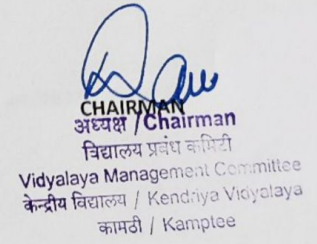 CHAIRMAN
अध्यक्ष /Chairman
विद्यालय प्रबंध कमिटी
Vidyalaya Management Committee
केन्द्रीय विद्यालय / Kendriya Vidyalaya
कामठी / Kamptee